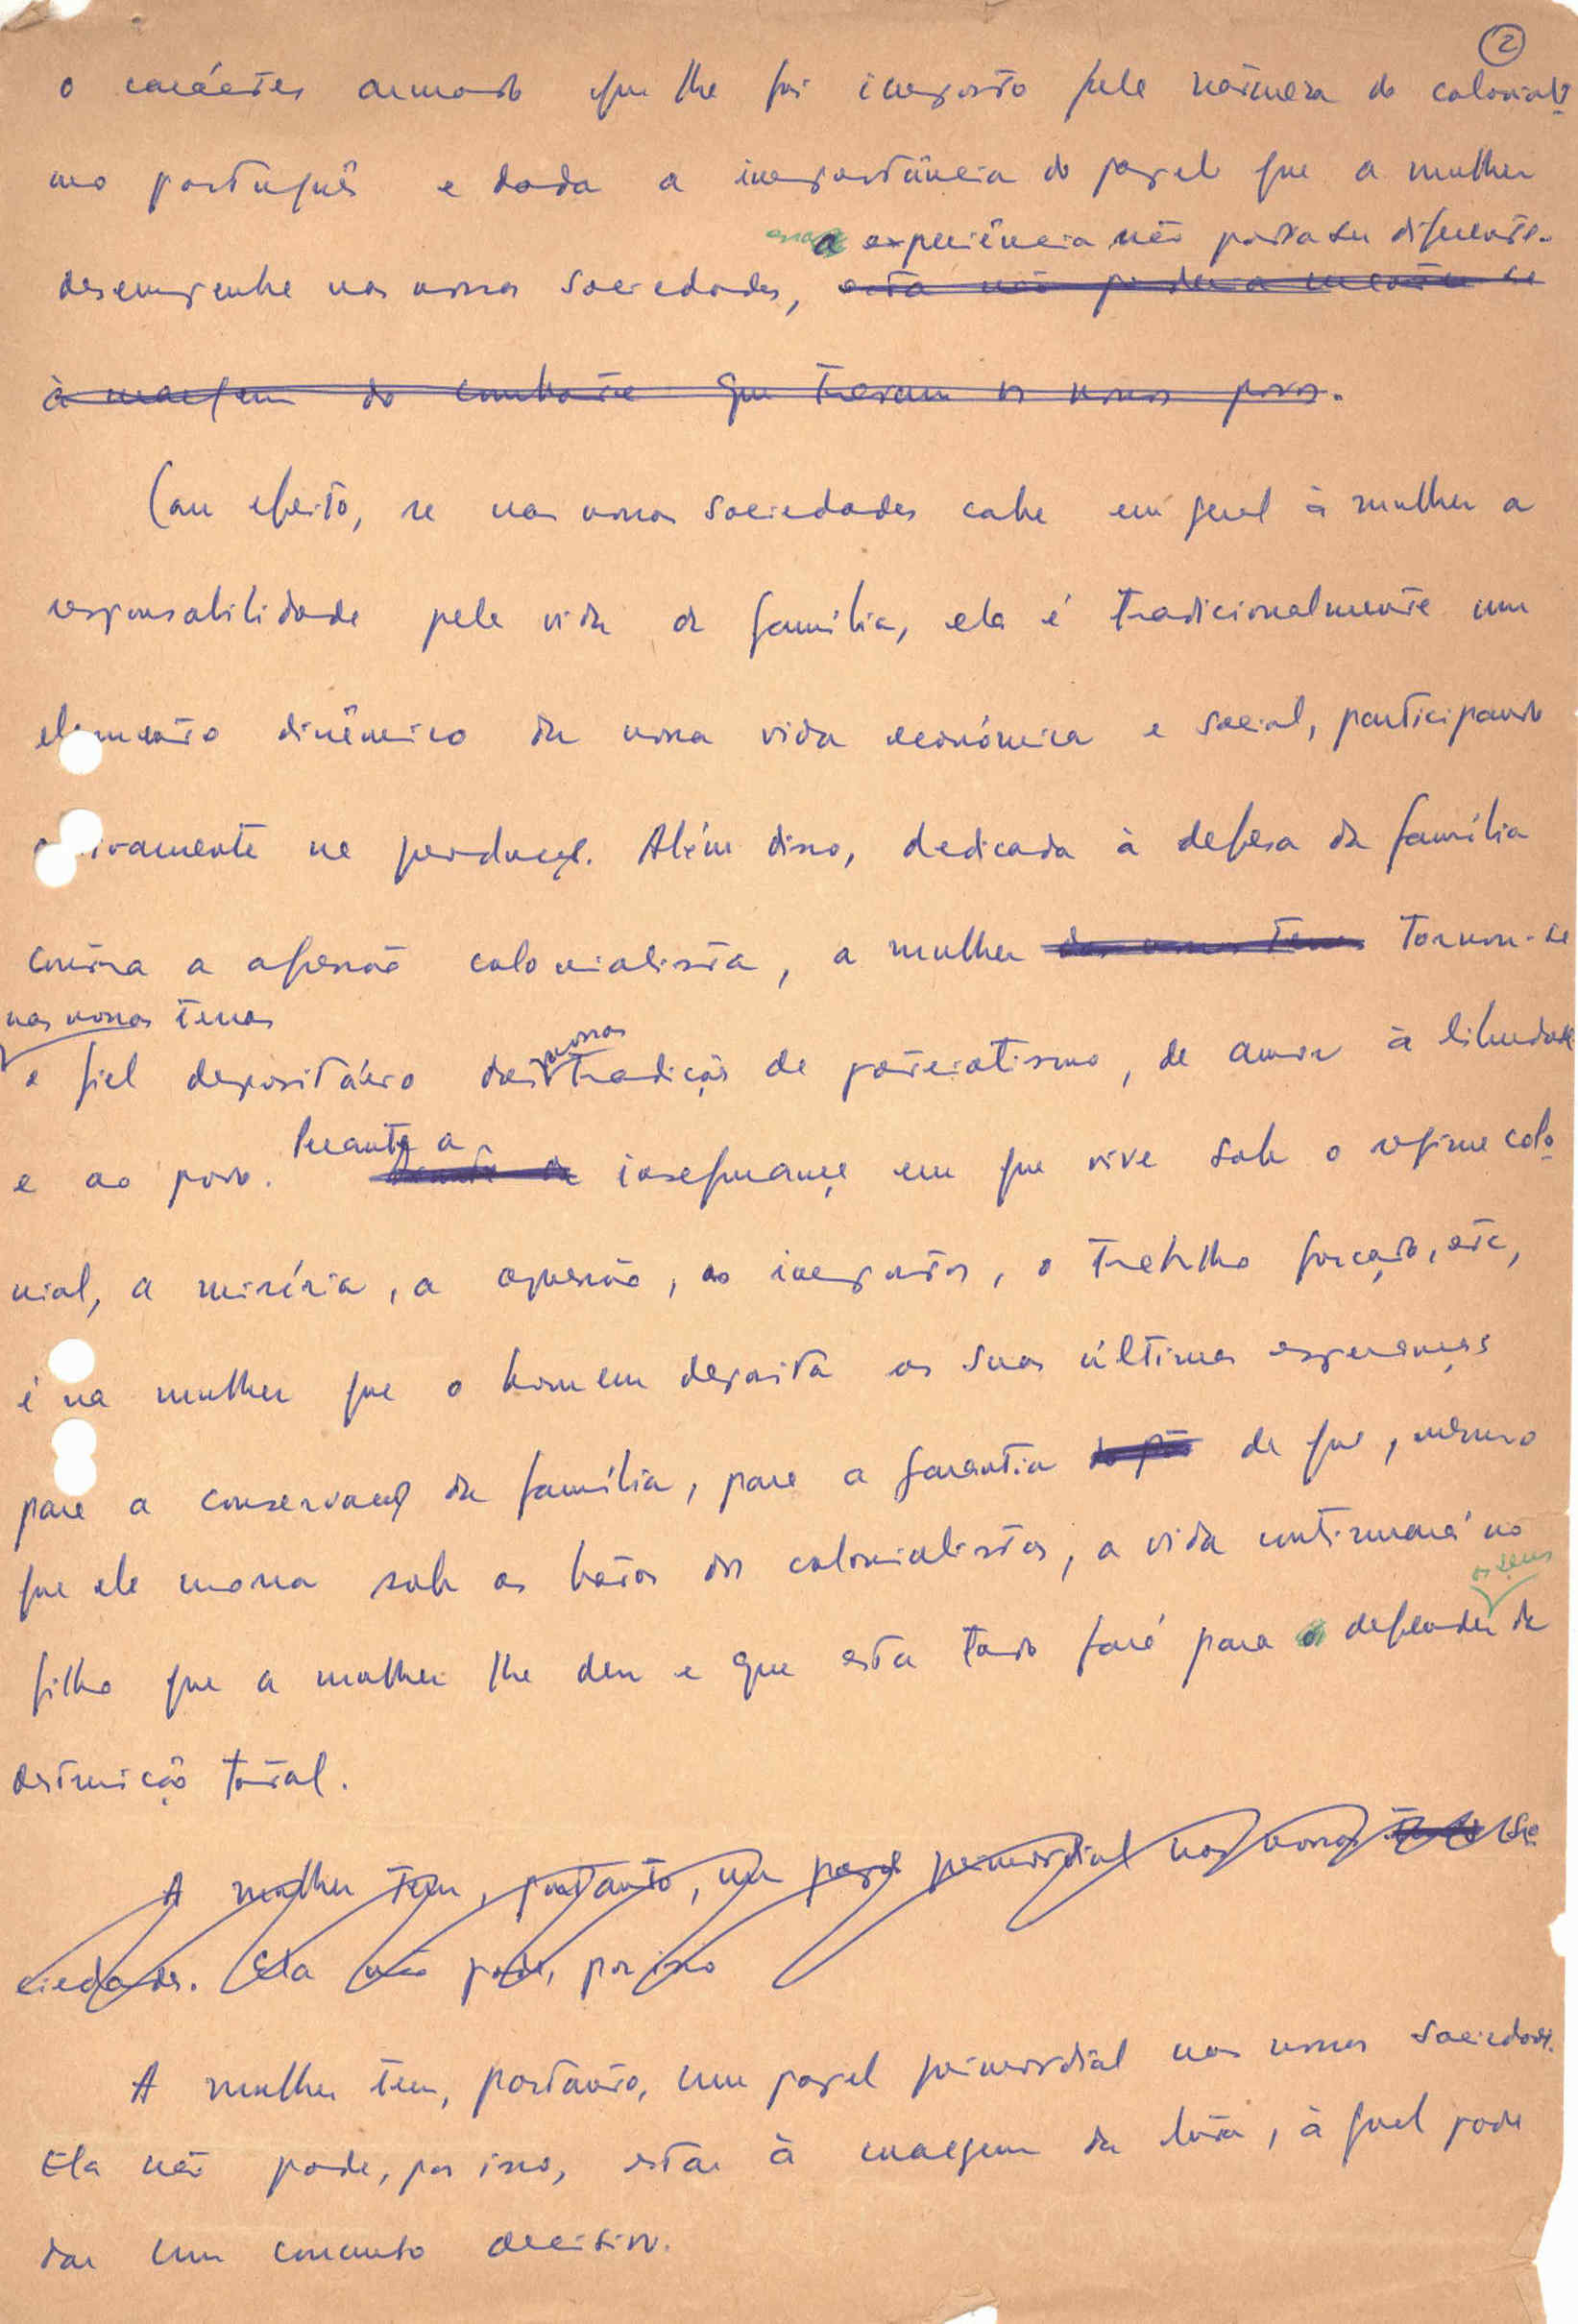 ②
o carácter armado que lhe foi imposto pela natureza do colonialis-
mo português e dada a importância do papel que a mulher
essa experiência não podia ser diferente.
desempenha nas nossas sociedades, esta não poderia manter-se
à margem do combate que travam os nossos povos.
Com efeito, se nas nossas sociedades cabe em geral à mulher a
responsabilidade pela vida da família, ela é tradicionalmente um
elemento dinâmico da nossa vida económica e social, participando
activamente na produção. Além disso, dedicada à defesa da família
contra a agressão colonialista, a mulher das nossas terras tornou-se
nas nossas terras
nossas
o fiel depositário das tradições de patriotismo, de amor à liberdade
Perante a
e ao povo. insegurança em que vive sob o regime colo-
nial, a miséria, a opressão, os impostos, o trabalho forçado, etc,
é na mulher que o homem deposita as suas últimas esperanças
para a conservação da família, para a garantia de que, mesmo
que ele morra sob as botas dos colonialistas, a vida continuará no
os seus
filho que a mulher lhe deu e que esta tudo fará para o defender da
destruição total.
A mulher tem, portanto, um papel primordial nas nossas so-
ciedades. Ela não pode, por isso
A mulher tem, portanto, um papel primordial nas nossas sociedades.
Ela não pode, por isso, estar à margem da luta, à qual pode
dar um concurso decisivo.